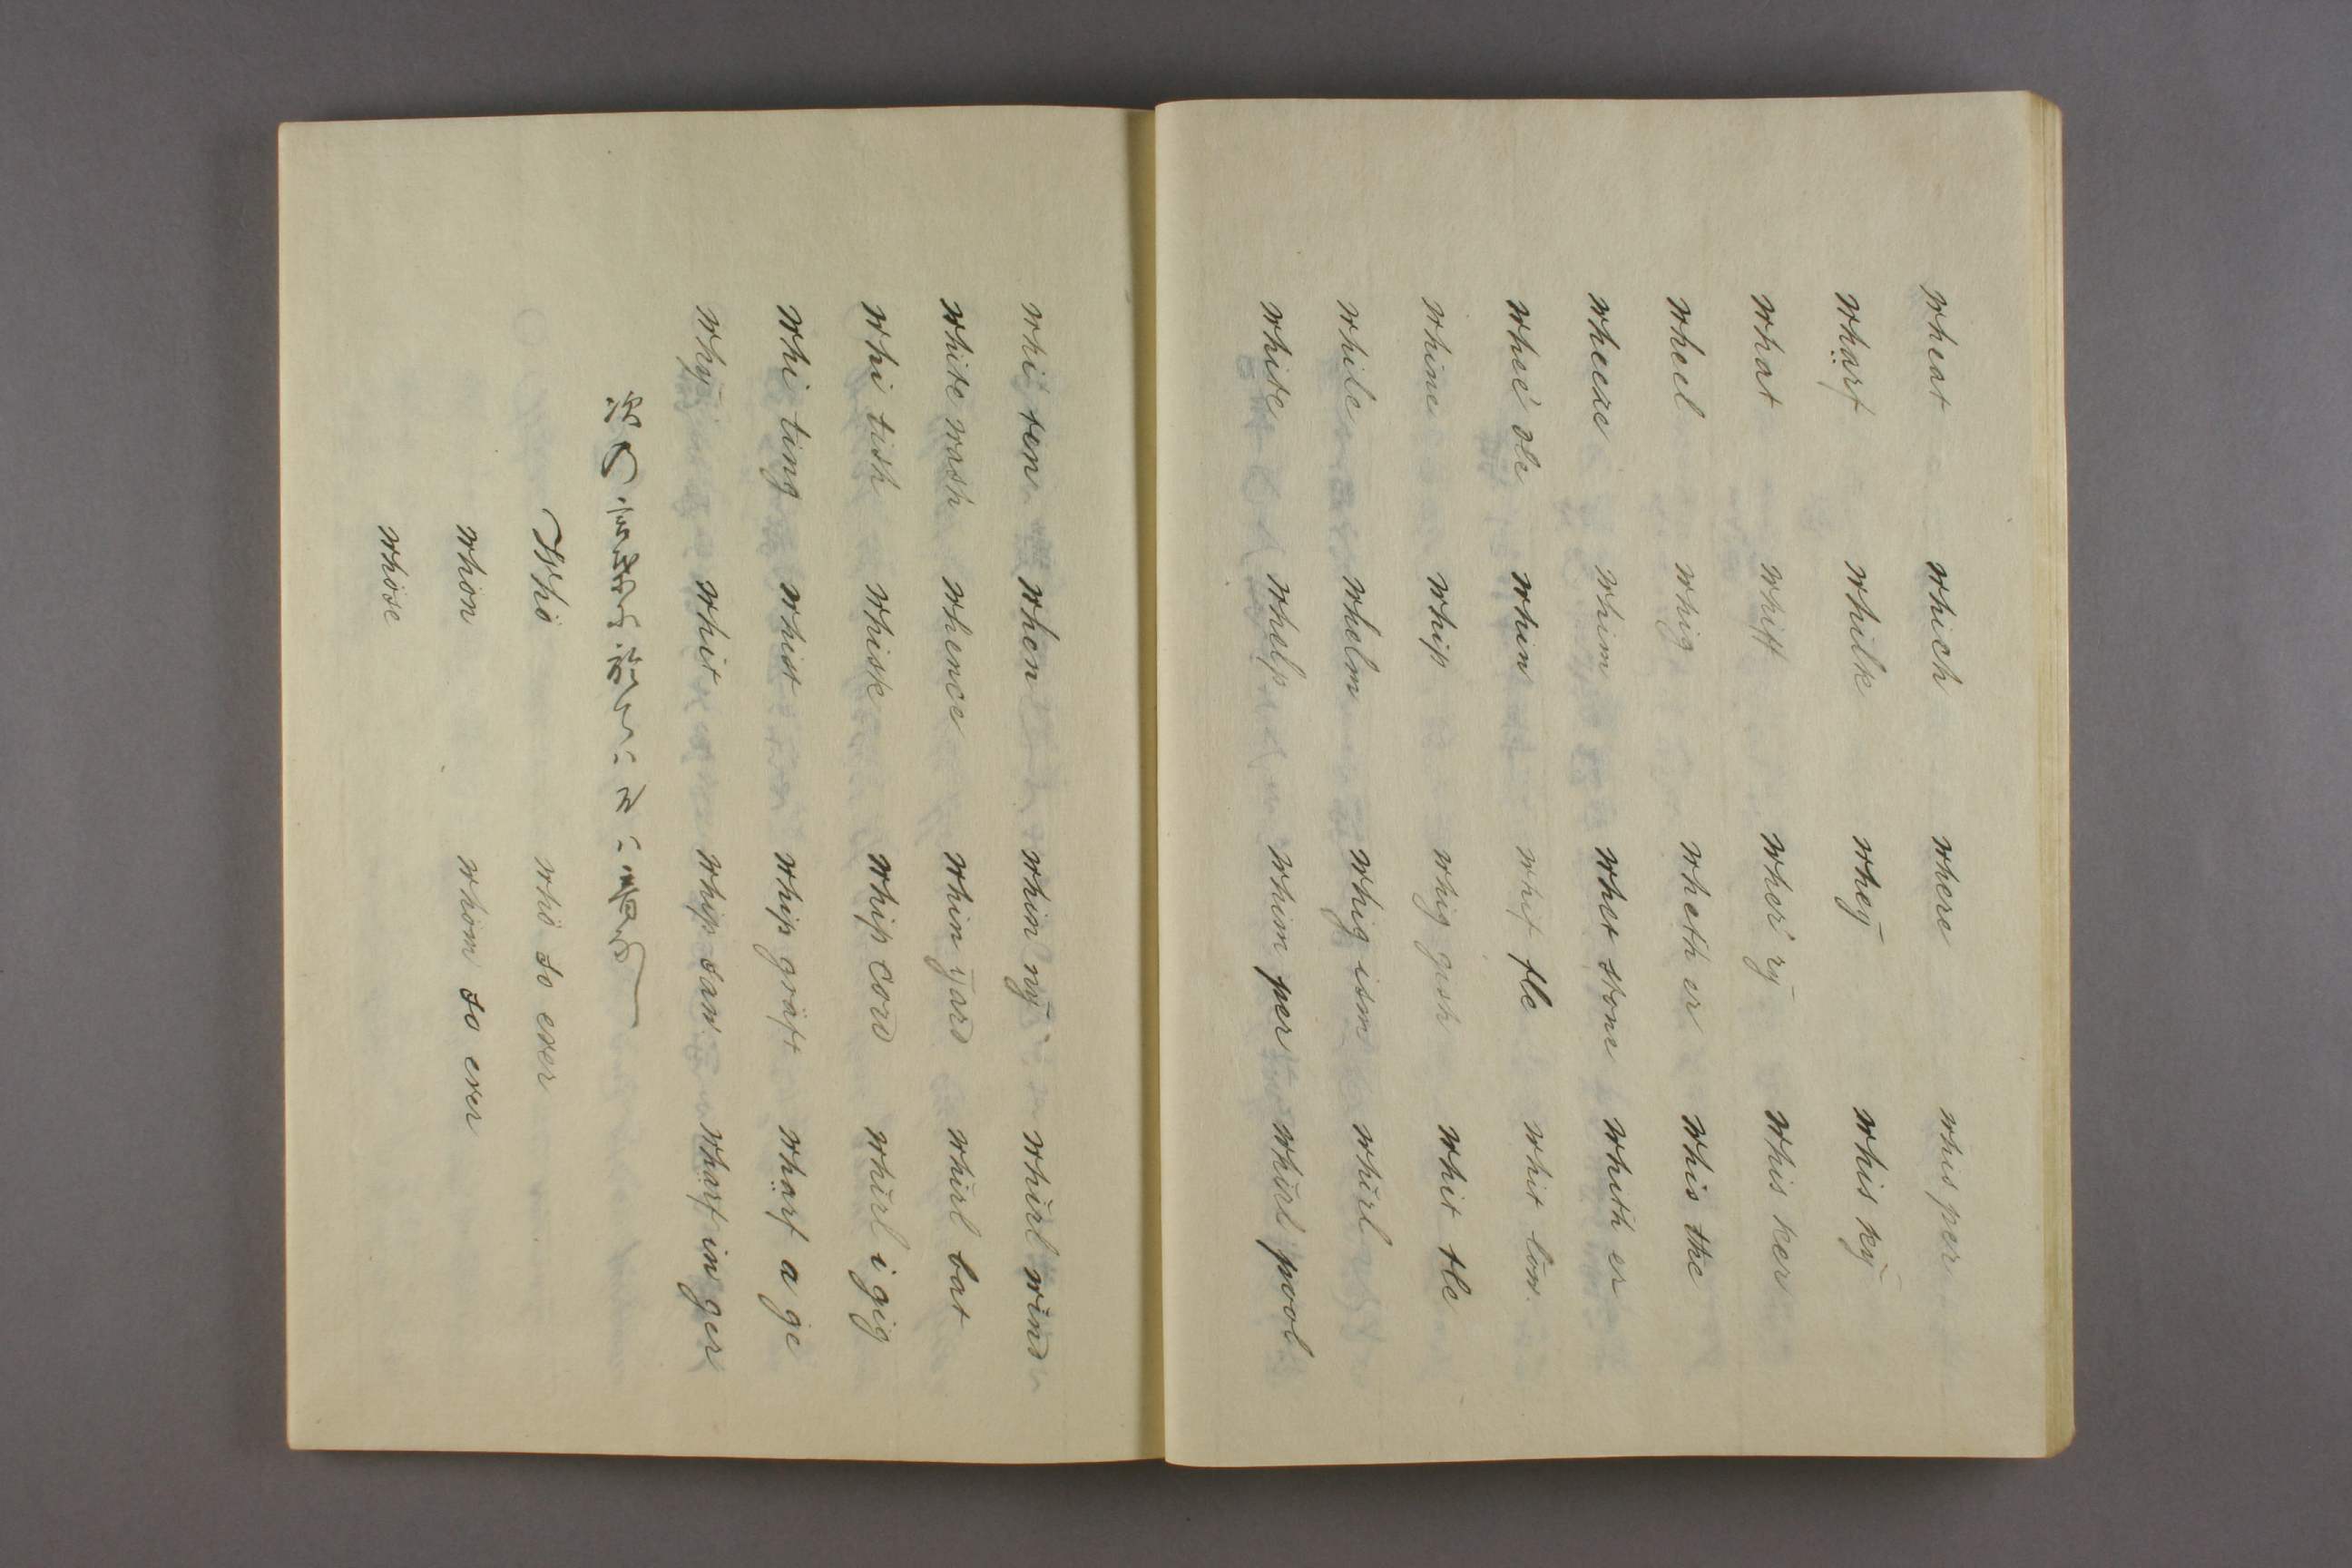 wheat which where whis per
whärf whilk whey whis ky
what whiff wher ry whis ker
wheel whig wheth er whis tle
wheeze whim whet stone whith er
whee dle whin whif fle whit low.
whine whip whig gish whit tle
while whelm whig ism whirl
white whelp whim per whirl pool
whi ten when whin ny whirl wind
white wash whence whin yard whirl bat
whi tish whisk whip cord whirl i gig
whi ting whist whip graft wharf a ge
why whit whip saw wharf in ger
Who who so ever
whon whom so ever
whose